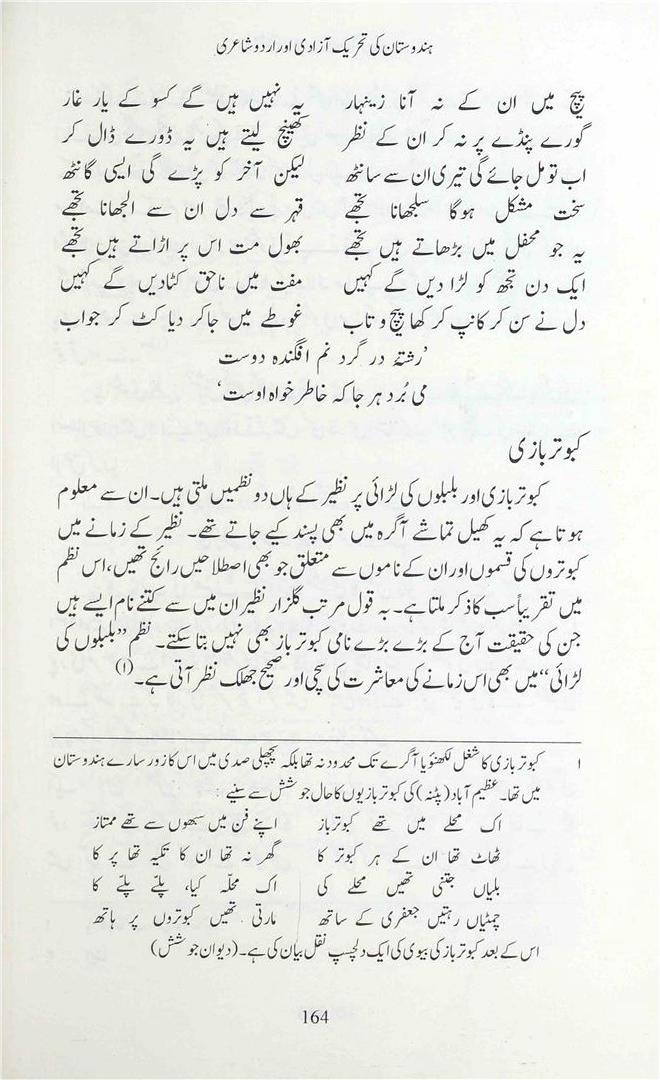 ہندوستان کی تحریک آزادی اور اردو شاعری
پیچ میں ان کے نہ آنا زینہار یہ نہیں ہیں گے کسو کے یار غار
گورے پنڈے پر نہ کر ان کے نظر کھینچ لیتے ہیں یہ ڈورے ڈال کر
اب تو مل جائے گی تیری ان سے سانٹھ لیکن آخر کو پڑے گی ایسی گانٹھ
سخت مشکل ہوگا سلجھانا تجھے قہر ہے دل ان سے الجھانا تجھے
یہ جو محفل میں بڑھاتے ہیں تجھے بھول مت اس پر اڑاتے ہیں تجھے
ایک دن تجھ کو لڑا دیں گے کہیں مفت میں ناحق کٹادیں گے کہیں
دل نے سن کر کانپ کر کھا پیچ و تاب غوطے میں جاکر دیا کٹ کر جواب
’رشتۂ در گرد نم افگندہ دوست
می بُرد ہر جا کہ خاطر خواہ اوست‘
کبوتر بازی
کبوتر بازی اور بلبلوں کی لڑائی پر نظیر کے ہاں دو نظمیں ملتی ہیں۔ ان سے معلوم
ہوتا ہے کہ یہ کھیل تماشے آگرہ میں بھی پسند کیے جاتے تھے۔ نظیر کے زمانے میں
کبوتروں کی قسموں اور ان کے ناموں سے متعلق جو بھی اصطلاحیں رائج تھیں، اس نظم
میں تقریباً سب کا ذکر ملتا ہے۔ بہ قول مرتب گلزار نظیر ان میں سے کتنے نام ایسے ہیں
جن کی حقیقت آج کے بڑے بڑے نامی کبوتر باز بھی نہیں بتا سکتے۔ نظم ”بلبلوں کی
لڑائی“ میں بھی اس زمانے کی معاشرت کی سچی اور صحیح جھلک نظر آتی ہے۔(۱)
۱ کبوتر بازی کا شغل لکھنؤ یا آگرے تک محدود نہ تھا بلکہ پچھلی صدی میں اس کا زور سارے ہندوستان
میں تھا۔ عظیم آباد (پٹنہ) کی کبوتر بازیوں کا حال جوشش سے سنیے :
اک محلے میں تھے کبوترباز اپنے فن میں سبھوں سے تھے ممتاز
ٹھاٹ تھا ان کے ہر کبوتر کا گھر نہ تھا ان کا تکیہ تھا پر کا
بلیاں جتنی تھیں محلے کی اک محلّہ کیا، پلّے پلّے کا
چمٹیاں رہتیں جعفری کے ساتھ مارتی تھیں کبوتروں پر ہاتھ
اس کے بعد کبوتر باز کی بیوی کی ایک دلچسپ نقل بیان کی ہے۔ (دیوان جوشش)
164